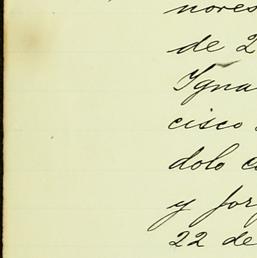 nores
de 2
Igna
cisco
dolo c
y for
22 de